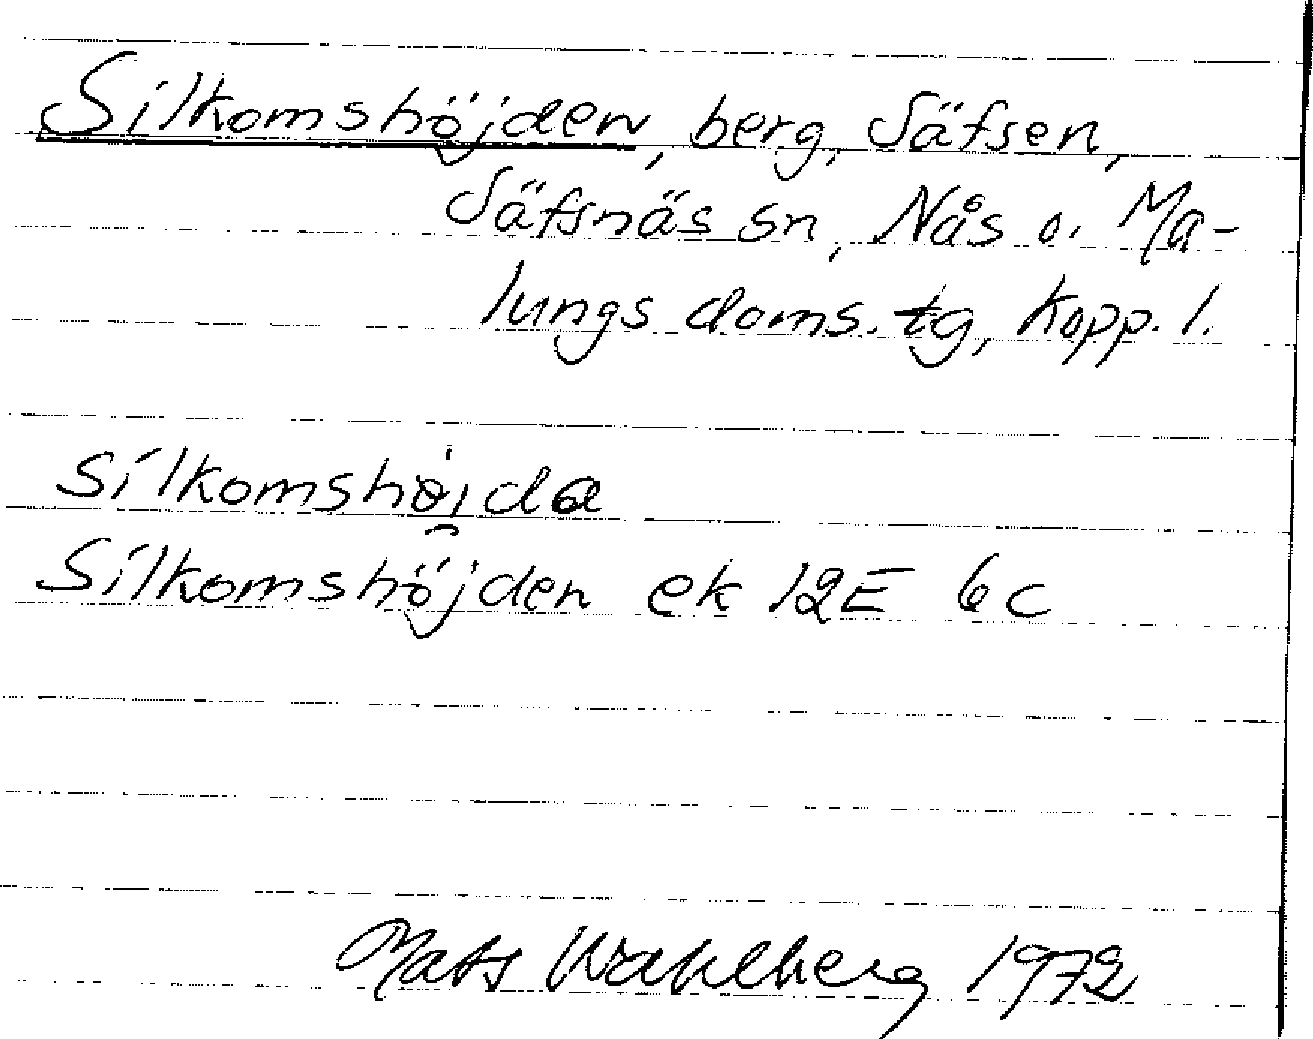 Silkomshöjden, berg, Säfsen,
Säfsnäs sn, Nås o. Ma-
lungs doms. tg, Kopp. l.
Silkomshöjden ek 12E 6c
Mats Wahlberg 1972